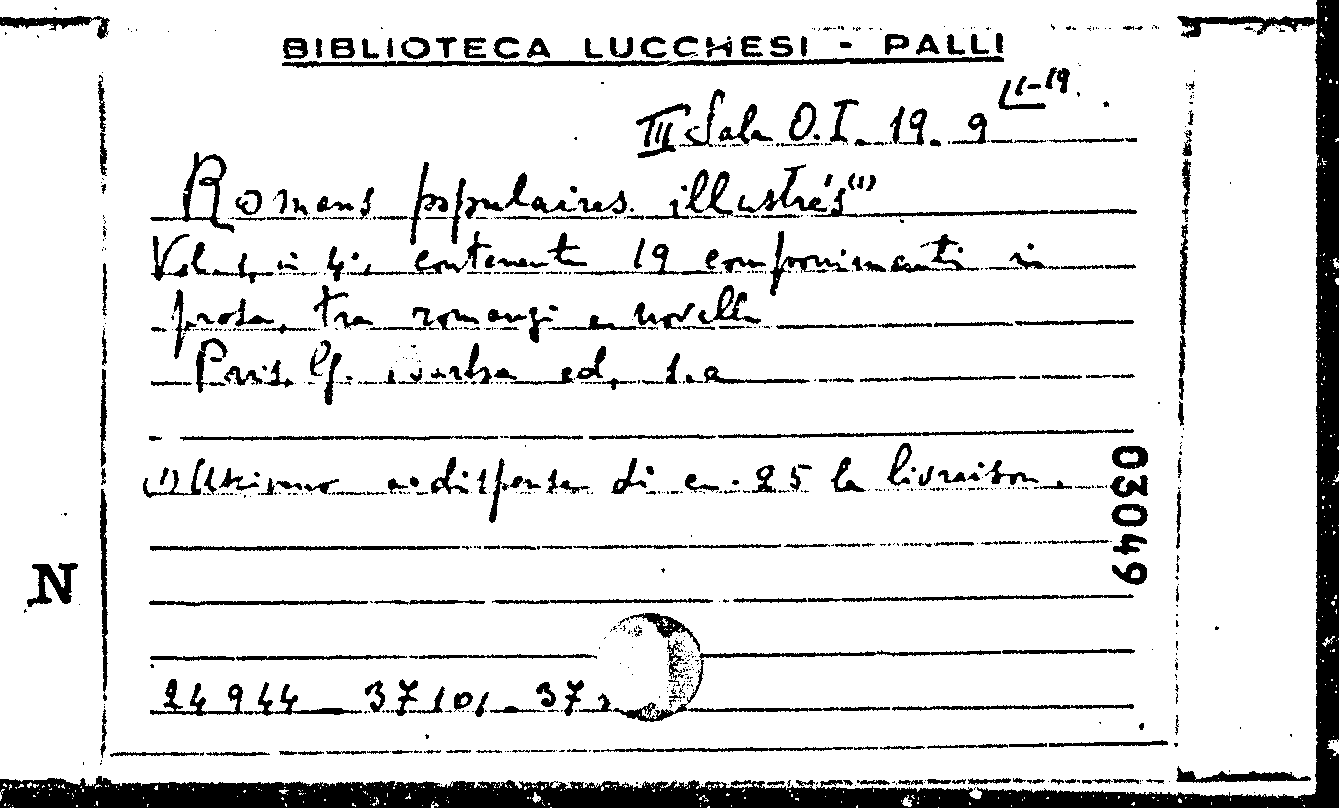 BIBLIOTECA LUCCHESI - PALLI
III Sala O.I. 19. 9 (1-19
Romans populaires illustrés (1)
in 4°, contenente 19 componimenti in
prosa, tra romanzi e novelle
G. ed. s.a
(1) a dispense di c. 25 la livraison.
03049
N
24944 - 37101 - 37